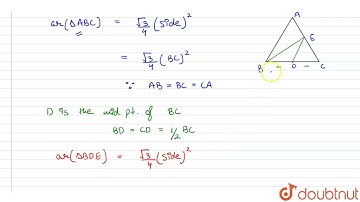 ar(ΔABC) = √3/4 (side)²
= √3/4 (BC)²
∵ AB = BC = CA
D is the mid pt. of BC
BD = CD = 1/2 BC
ar(ΔBDE) = √3/4 (side)²
A
E
B D C
doubtnut